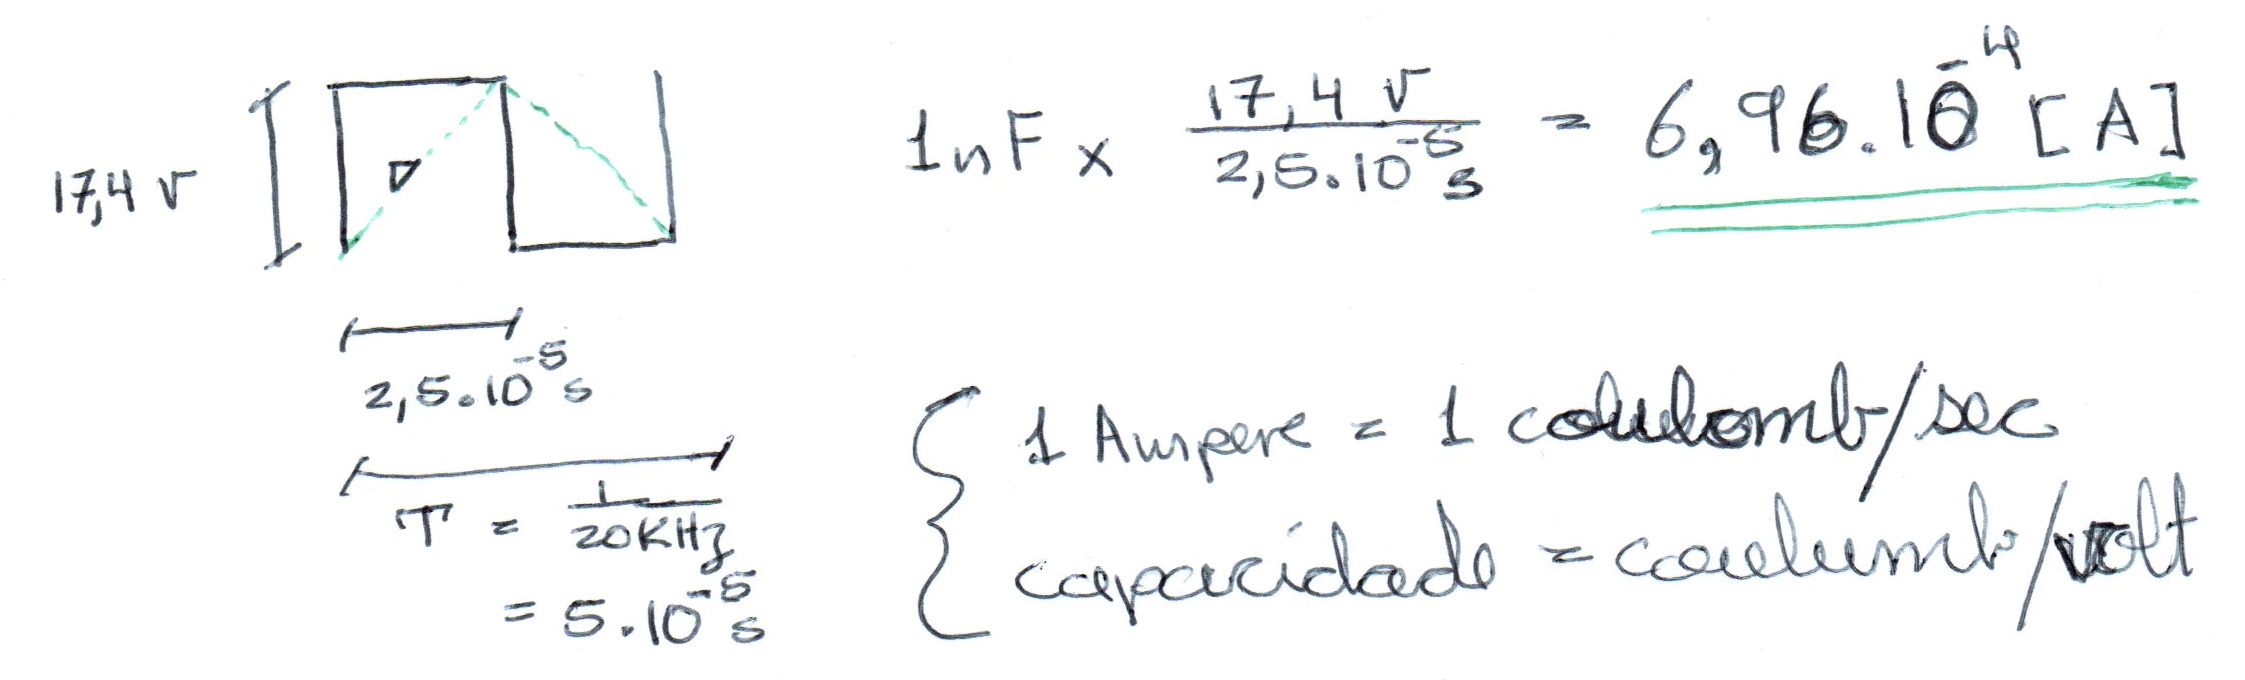 17,4 v
2,5.10⁻⁵ s
T = 1/20KHz
= 5.10⁻⁵ s
1nF x 17,4 v / 2,5.10⁻⁵ s = 6,96.10⁻⁴ [A]
1 Ampere = 1 coulomb/sec
capacidade = coulumb/volt